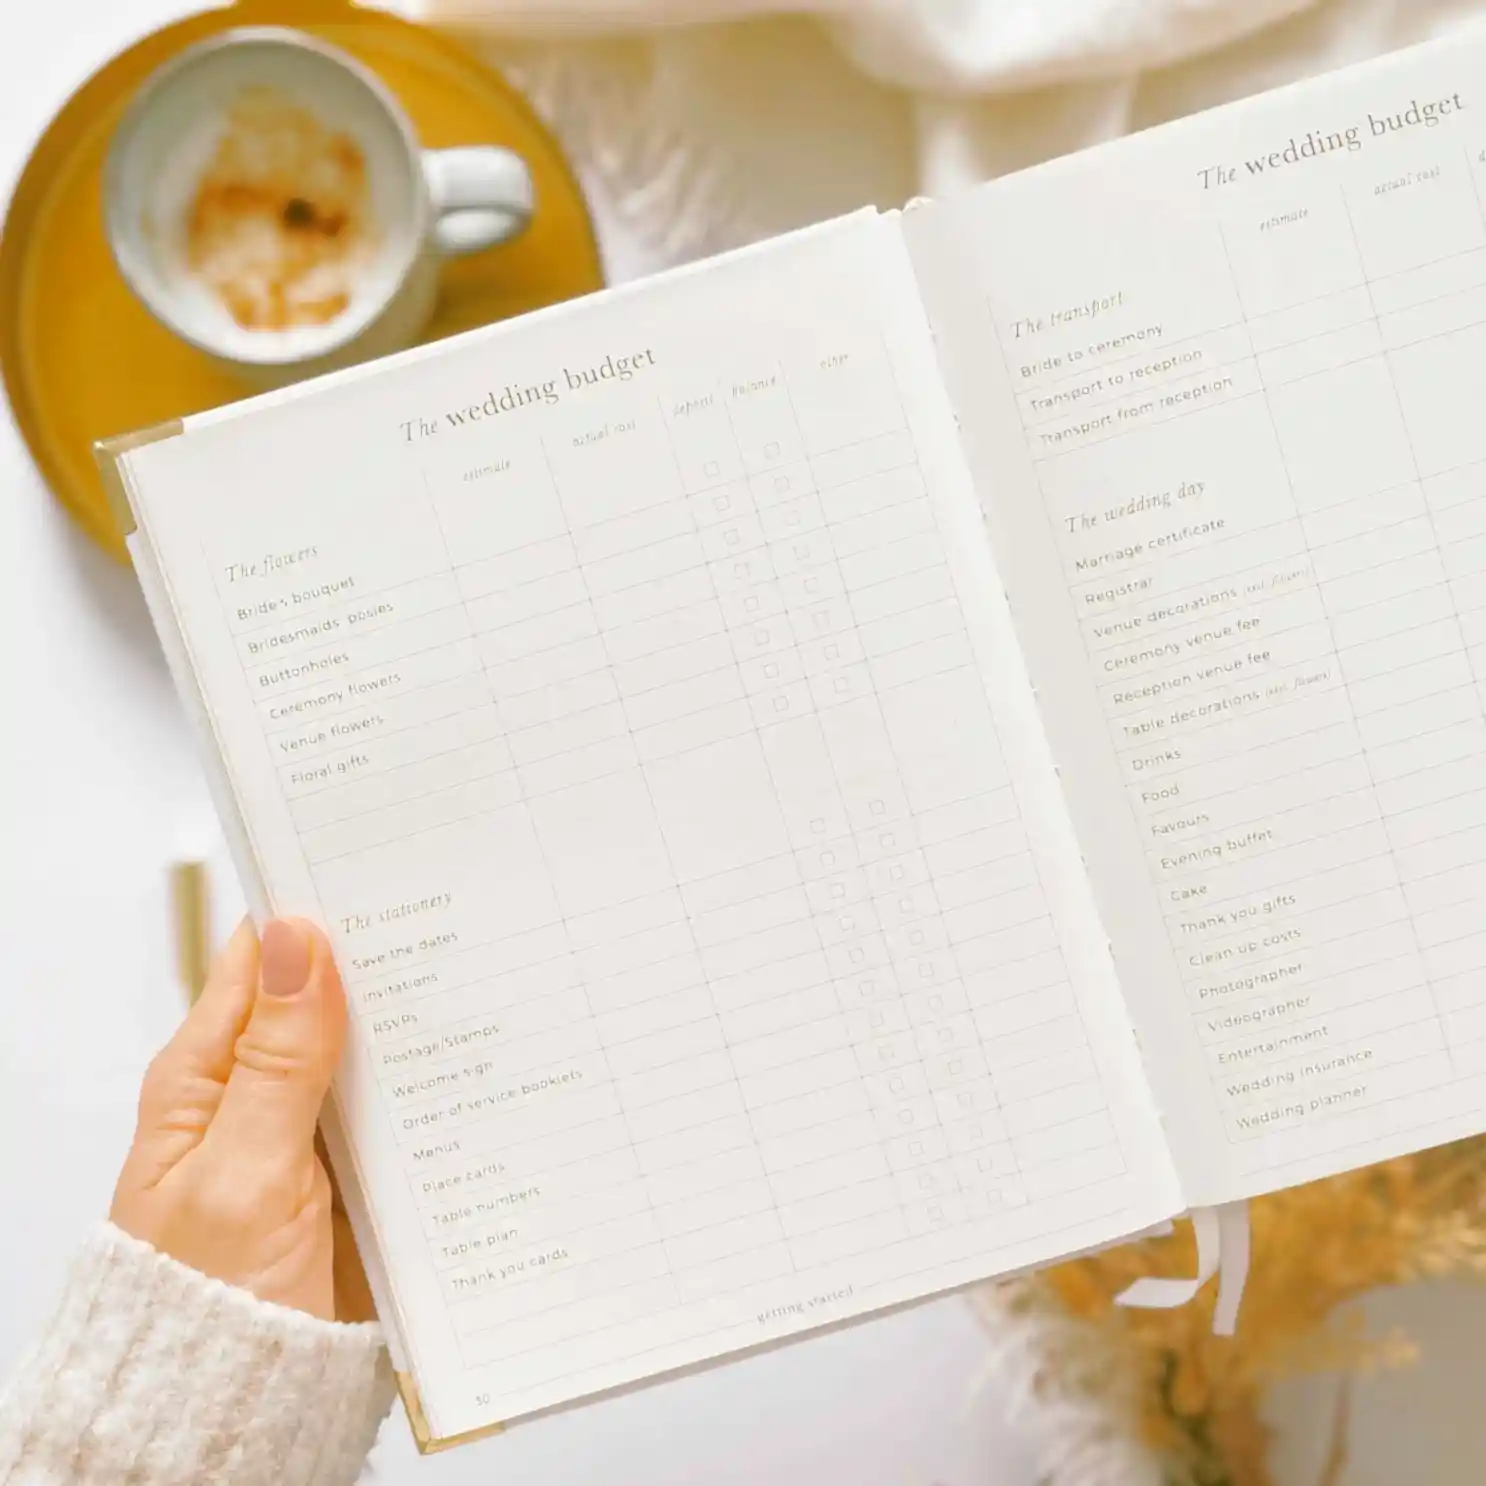 The wedding budget
estimate
actual cost
deposit
balance
other
The flowers
Bride's bouquet
Bridesmaids' posies
Buttonholes
Ceremony flowers
Venue flowers
Floral gifts
The stationery
Save the dates
Invitations
RSVPs
Postage/Stamps
Welcome sign
Order of service booklets
Menus
Place cards
Table numbers
Table plan
Thank you cards
getting started
30
The wedding budget
estimate
actual cost
The transport
Bride to ceremony
Transport to reception
Transport from reception
The wedding day
Marriage certificate
Registrar
Venue decorations (exl. flowers)
Ceremony venue fee
Reception venue fee
Table decorations (exl. flowers)
Drinks
Food
Favours
Evening buffet
Cake
Thank you gifts
Clean up costs
Photographer
Videographer
Entertainment
Wedding insurance
Wedding planner